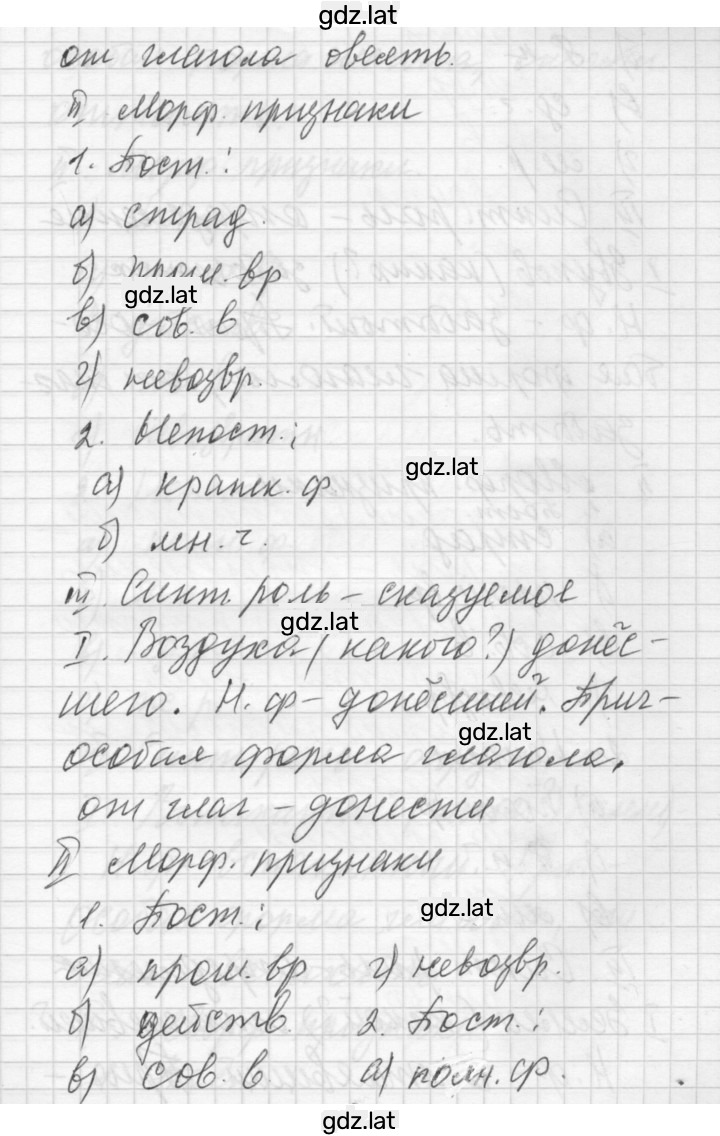 gdz.lat
от глагола овеять.
II Морф. признаки
1. Пост.:
а) страд.
б) прош. вр
gdz.lat
в) сов. в
г) невозвр.
2. Непост.:
gdz.lat
а) кратк. ф
б) мн. ч.
III Синт. роль – сказуемое
gdz.lat
I. Воздуха (какого?) донёс-
шего. Н. ф – донёсший. Прич-
gdz.lat
особая форма глагола,
от глаг – донести
II Морф. признаки
gdz.lat
1. Пост.:
а) прош. вр г) невозвр.
б) действ. 2. Пост.:
в) сов. в. а) полн. ф.
gdz.lat